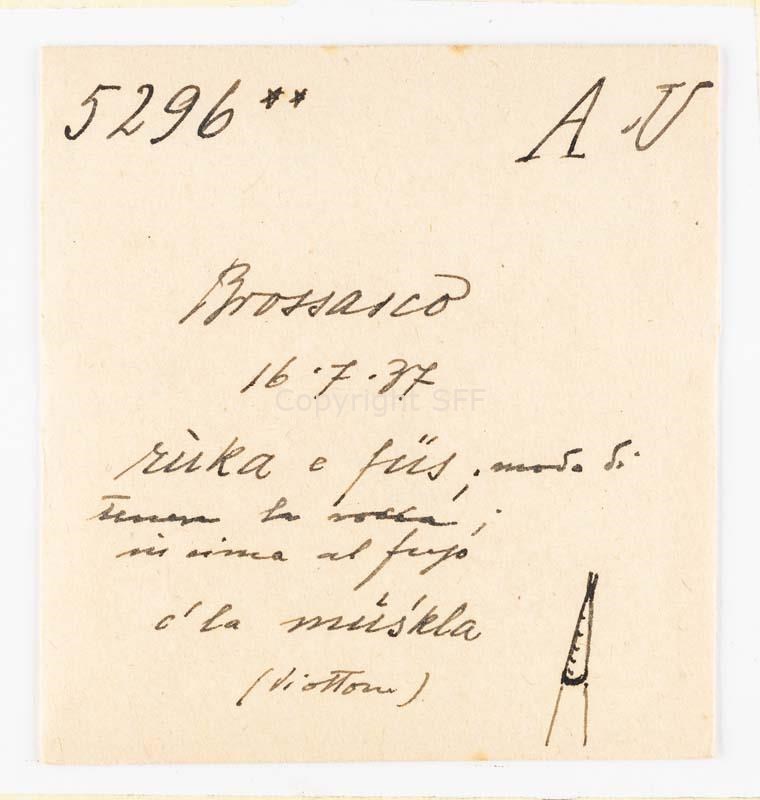 5296** A.V
Brossasco
16.7.37
Copyright SFF
rùka e füs, modo di
tenere la rocca;
in cima al fuso
c'la mǘśkla
(di ottone)